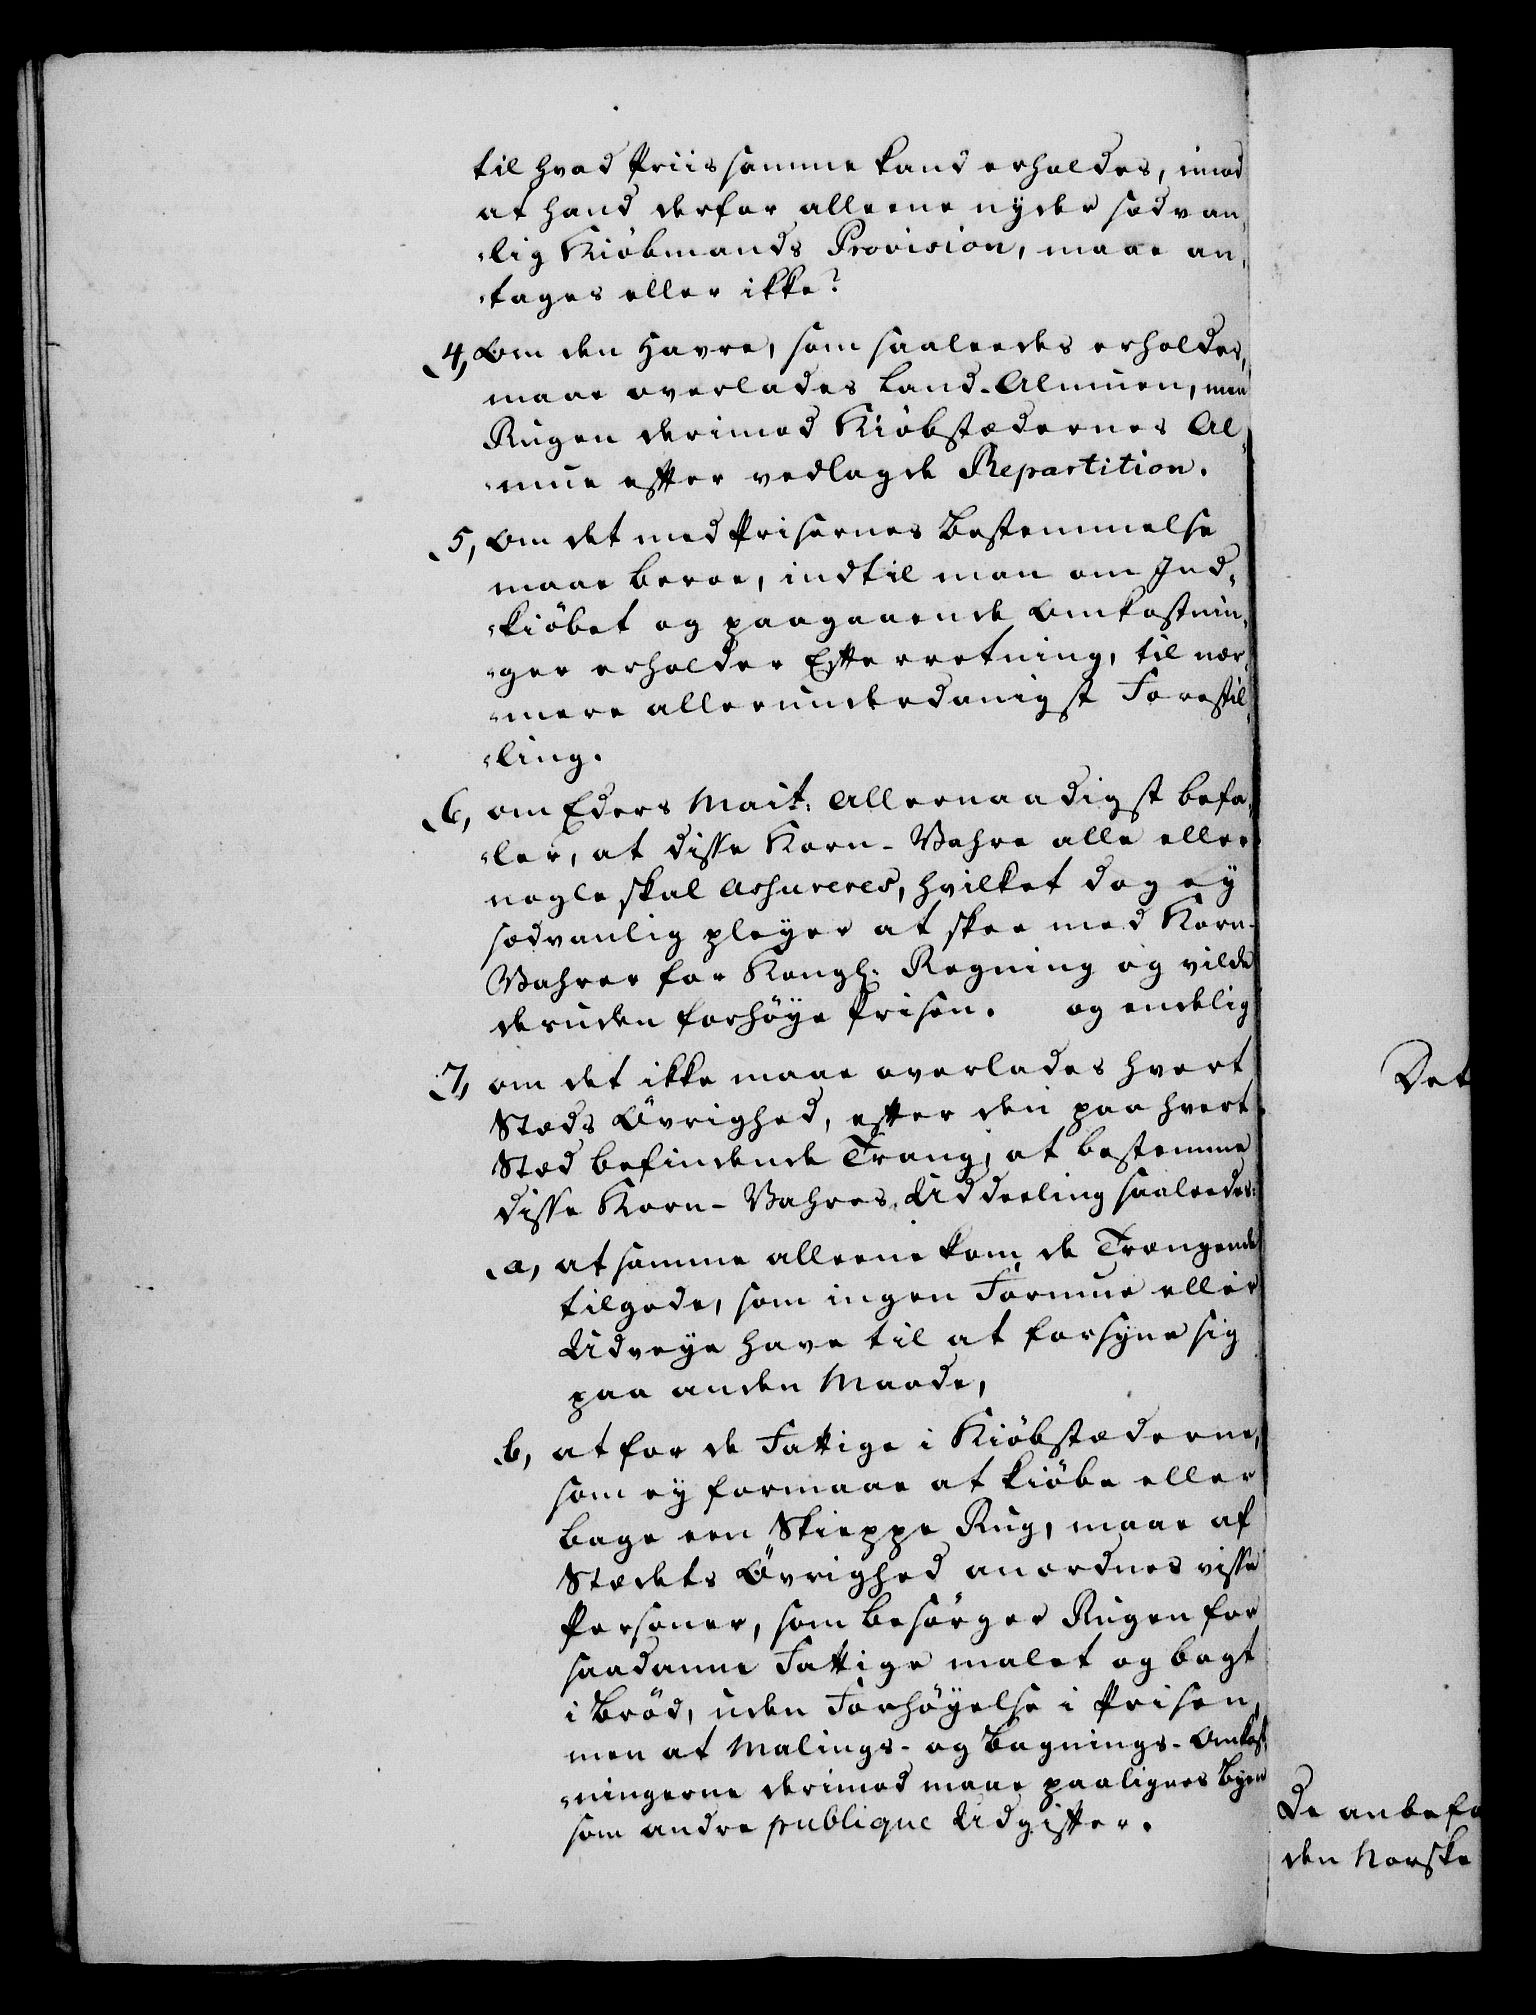 til hvad Priis samme kand erholdes, imod
at hand derfor alleene nyder sædvan-
-lig Kiöbmands Provision, maae an-
-tages eller ikke?
4, Om den Havre, som saaleedes erholdes,
maae overlades Land-Almuen, men
Rugen derimod Kiöbstædernes Al-
-mue efter vedlagde Repartition.
5, Om det med Prisernes Bestemmelse
maae beroe, indtil man om Ind-
-kiöbet og paagaaende Omkostnin-
-ger erholder Efterretning, til nær-
-mere allerunderdanigst Forestil-
-ling.
6, om Eders Mait: Allernaadigst befa-
-ler, at disse Korn-Vahre alle eller
nogle skal Assureres, hvilket dog ey
sædvanlig pleyer at skee med Korn-
Vahrer for Kongl: Regning og vilde
desuden forhöye Prisen. og endelig
7, om det ikke maae overlades hvert
Stæds Övrighed, efter den paa hvert
Stæd befindende Trang, at bestemme
disse Korn-Vahres Uddeeling saaleedes:
a, at samme alleene kom de Trængende
tilgode, som ingen Formue eller
Udveye have til at forsyne sig
paa anden Maade,
b, at for de Fattige i Kiöbstæderne,
som ey formaae at kiöbe eller
bage een Skieppe Rug, maae af
Stædets Övrighed anordnes visse
Personer, som besörger Rugen for
saadanne Fattige malet og bagt
i Bröd, uden Forhöyelse i Prisen,
men at Malings- og Bagnings-Omkost-
-ningerne derimod maae paalignes Byen
som andre publique Udgifter.
Det
De anbefa
den Norske